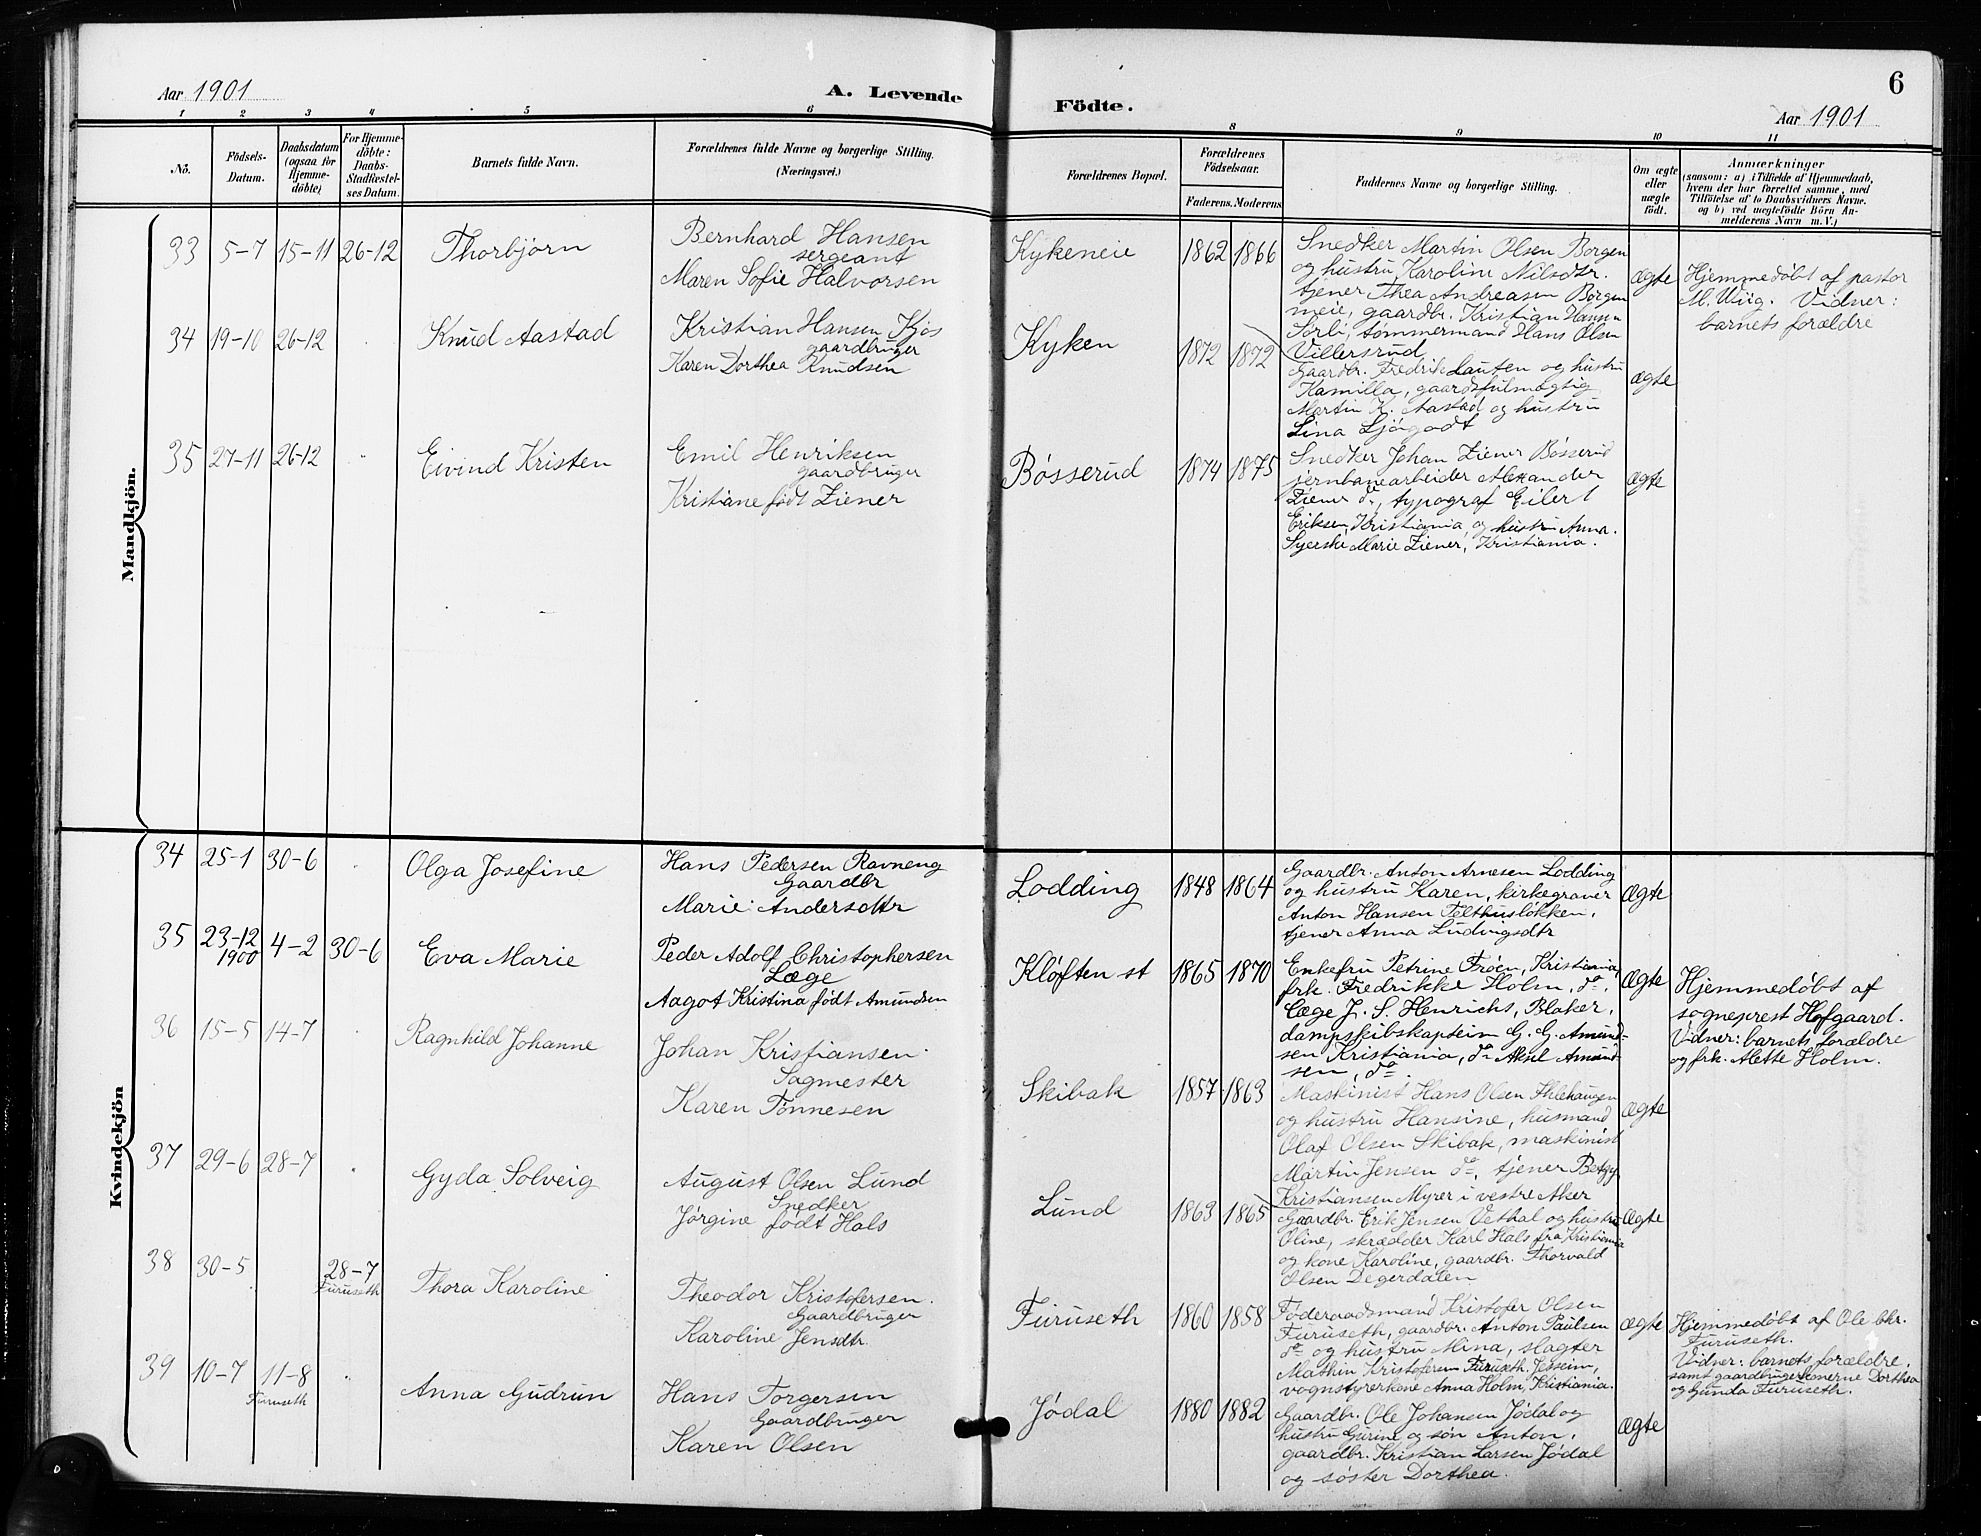 Aar 1901
A. Levende
Födte.
6
Aar 1901
1 2 3 4 5 6 8 9 10 11
No.
Födsels-
Datum.
Daabsdatum
(ogsaa for
Hjemme-
döbte)
For Hjemme-
döbte:
Daabs-
Stadfæstel-
ses Datum.
Barnets fulde Navn.
Forældrenes fulde Navne og borgerlige Stilling.
(Næringsvei.)
Forældrenes Bopæl.
Forældrenes
Födselsaar.
Faderens. Moderens.
Faddernes Navne og borgerlige Stilling.
Om ægte
eller
uægte
födt.
Anmærkninger
(saasom: a) i Tilfælde af Hjemmedaab,
hvem der har forrettet samme, med
Tilföielse af to Daabsvidners Navne.
og b) ved uegtefödte Börn An-
melderens Navn m. V.)
Mandkjön.
33 5-7 15-11 26-12 Thorbjørn
Bernhard Hansen
sergeant
Maren Sofie Halvorsen
Kykeneie 1862 1866
Snedker Martin Olsen Borgen
og hustru Karoline Nilsdtr.
tjener Thea Andreasen Borgen
meie, gaardbr. Kristian Hansen
Sørli, tømmermand Hans Olsen
Villersrud
ægte
Hjemmedøbt af pastor
M. Wiig. Vidner:
barnets forældre
34 19-10 26-12 Knud Aastad
Kristian Hansen Kjos
gaardbruger
Karen Dorthea Knudsen
Kyken 1872 1872
Gaardbr. Fredrik Lauten og hustru
Kamilla, gaardsfulmægtig
Martin K. Aastad og hustru
Lina Ljøgodt
ægte
35 27-11 26-12 " Eivind Kristen
Emil Henriksen
gaardbruger
Kristiane født Ziener
Bøsserud 1874 1875
Snedker Johan Ziener Bøsserud
jernbanearbeider Alexander
Ziener do, typograf Eilert
Eriksen, Kristiania og hustru Anna.
Syerske Marie Ziener, Kristiania.
ægte
Kvindekjön
34 25-1 30-6 Olga Josefine
Hans Pedersen Ravneng
Gaardbr
Marie Andersdtr
Lodding 1848 1864
Gaardbr. Anton Arnesen Lodding
og hustru Karen, kirkegraver
Anton Hansen Telthusløkken,
tjener Anna Ludvigsdtr
Ægte
35 23-12 1900 4-2 30-6 Eva Marie
Peder Adolf Christophersen
Læge
Aagot Kristina født Amundsen
Kløften st 1865 1870
Enkefru Petrine Frøen, Kristiania,
frk. Fredrikke Holm, do,
Læge J. S. Henrichs, Blaker,
dampskibskaptein G. G. Amund-
sen Kristiania, do Aksel Amund-
sen, do
Ægte
Hjemmedøbt af
sogneprest Hofgaard.
Vidner: barnets forældre
og frk. Alette Holm.
36 15-5 14-7 Ragnhild Johanne
Johan Kristiansen
Sagmester
Karen Tønnesen
Skibak 1857 1863
Maskinist Hans Olsen Ihlehaugen
og hustru Hansine, husmand
Olaf Olsen Skibak, maskinist
Martin Jensen do, tjener Betzy
Kristiansen Myrer i vestre Aker
Ægte
37 29-6 28-7 Gyda Solveig
August Olsen Lund
Snedker
Jørgine født Hals
Lund 1863 1865
Gaardbr. Erik Jensen Vethal og hustru
Oline, skrædder Karl Hals fra Kristiania
og kone Karoline, gaardbr. Thorvald
Olsen Degerdalen
Ægte
38 30-5 28-7
Furuseth
Thora Karoline
Theodor Kristofersen
Gaardbruger
Karoline Jensdtr.
Furuseth 1860 1858
Føderaadsmand Kristofer Olsen
Furuseth, gaardbr. Anton Paulsen
do og hustru Mina, slagter
Mathin Kristofersen Furuseth, Jesseim,
vognstyrerkone Anna Holm, Kristiania.
Ægte
Hjemmedøbt af Ole bkr.
Furuseth.
Vidner: barnets forældre,
samt gaardbrugerkonerne Dorthea
og Gunda Furuseth.
39 10-7 11-8
Furuseth
Anna Gudrun
Hans Torgersen
Gaardbruger
Karen Olsen
Jødal 1880 1882
Gaardbr. Ole Johansen Jødal og
hustru Gurine og søn Anton,
gaardbr. Kristian Larsen Jødal
og søster Dorthea.
Ægte